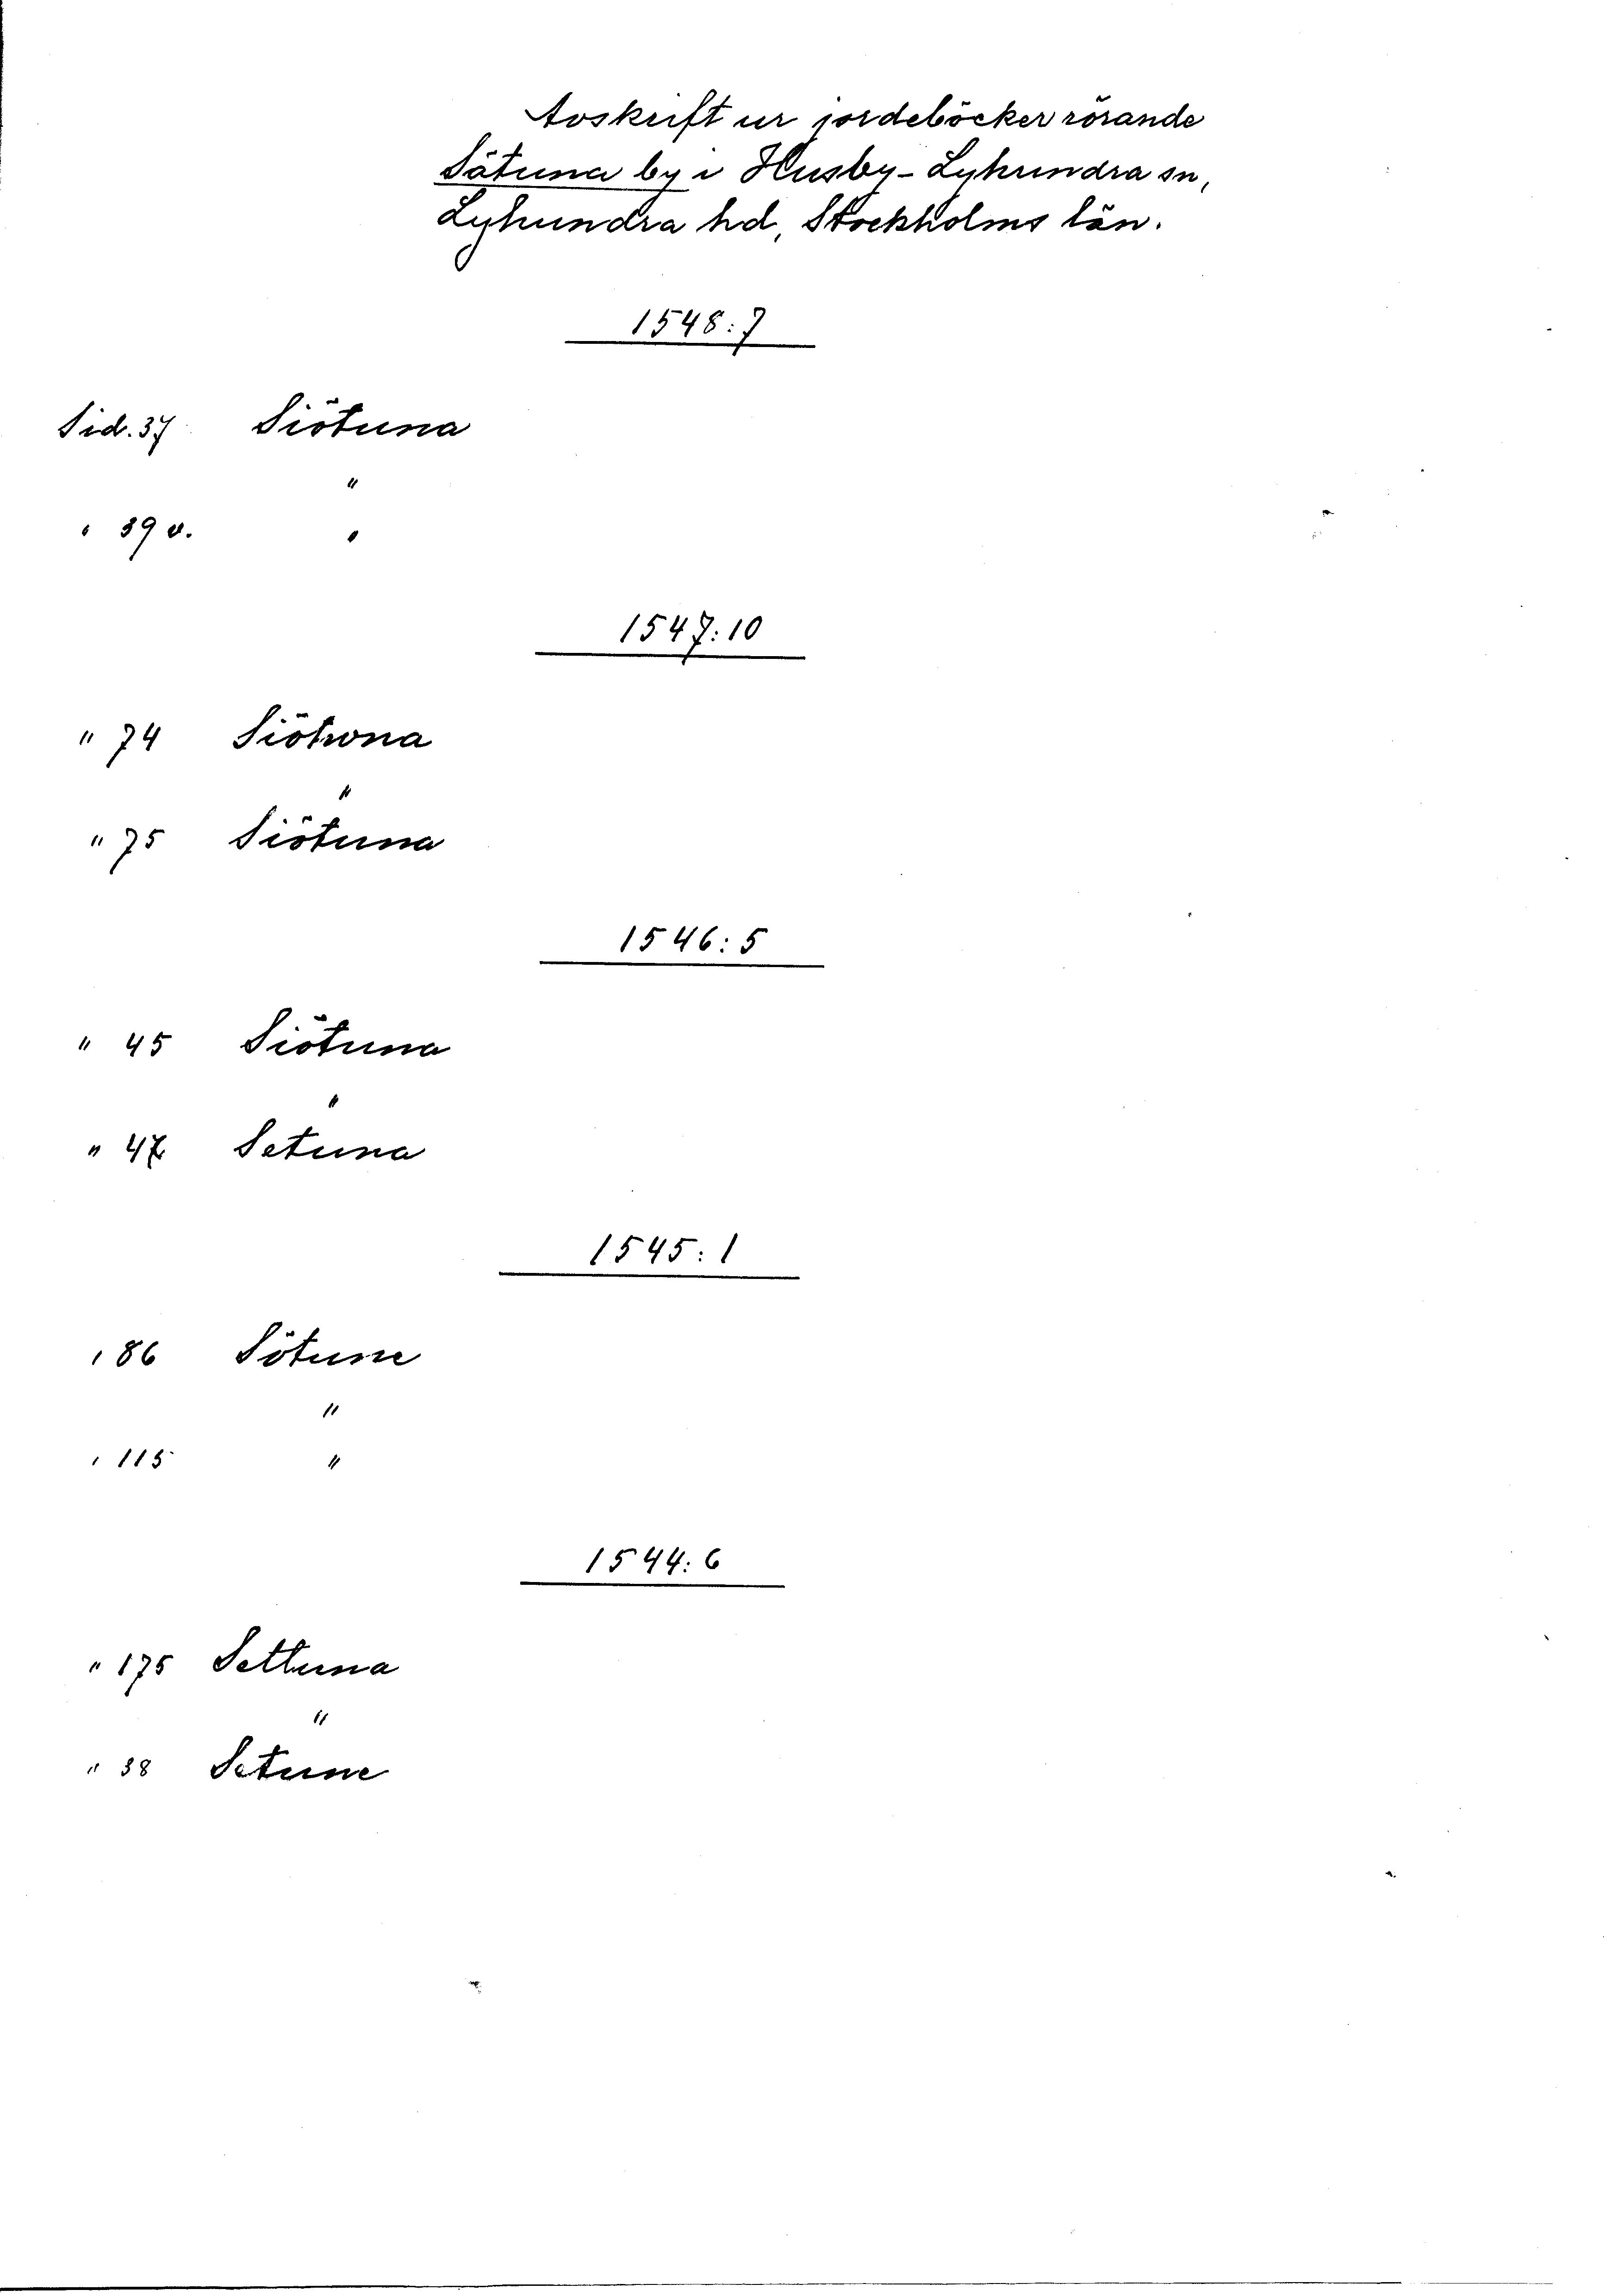 Avskrift ur jordeböcker rörande
Sätuna by i Husby-Lyhundra sn,
Lyhundra hd, Stockholms län.
1548:7
Sid. 37 Siötuna
"
" 39 v. "
1547:10
" 74 Siötwna
"
" 75 Siötuna
1546:5
" 45 Siötuna
"
" 47 Setuna
1545:1
" 86 Sötune
"
" 115 "
1544:6
" 175 Settuna
"
" 38 Setune